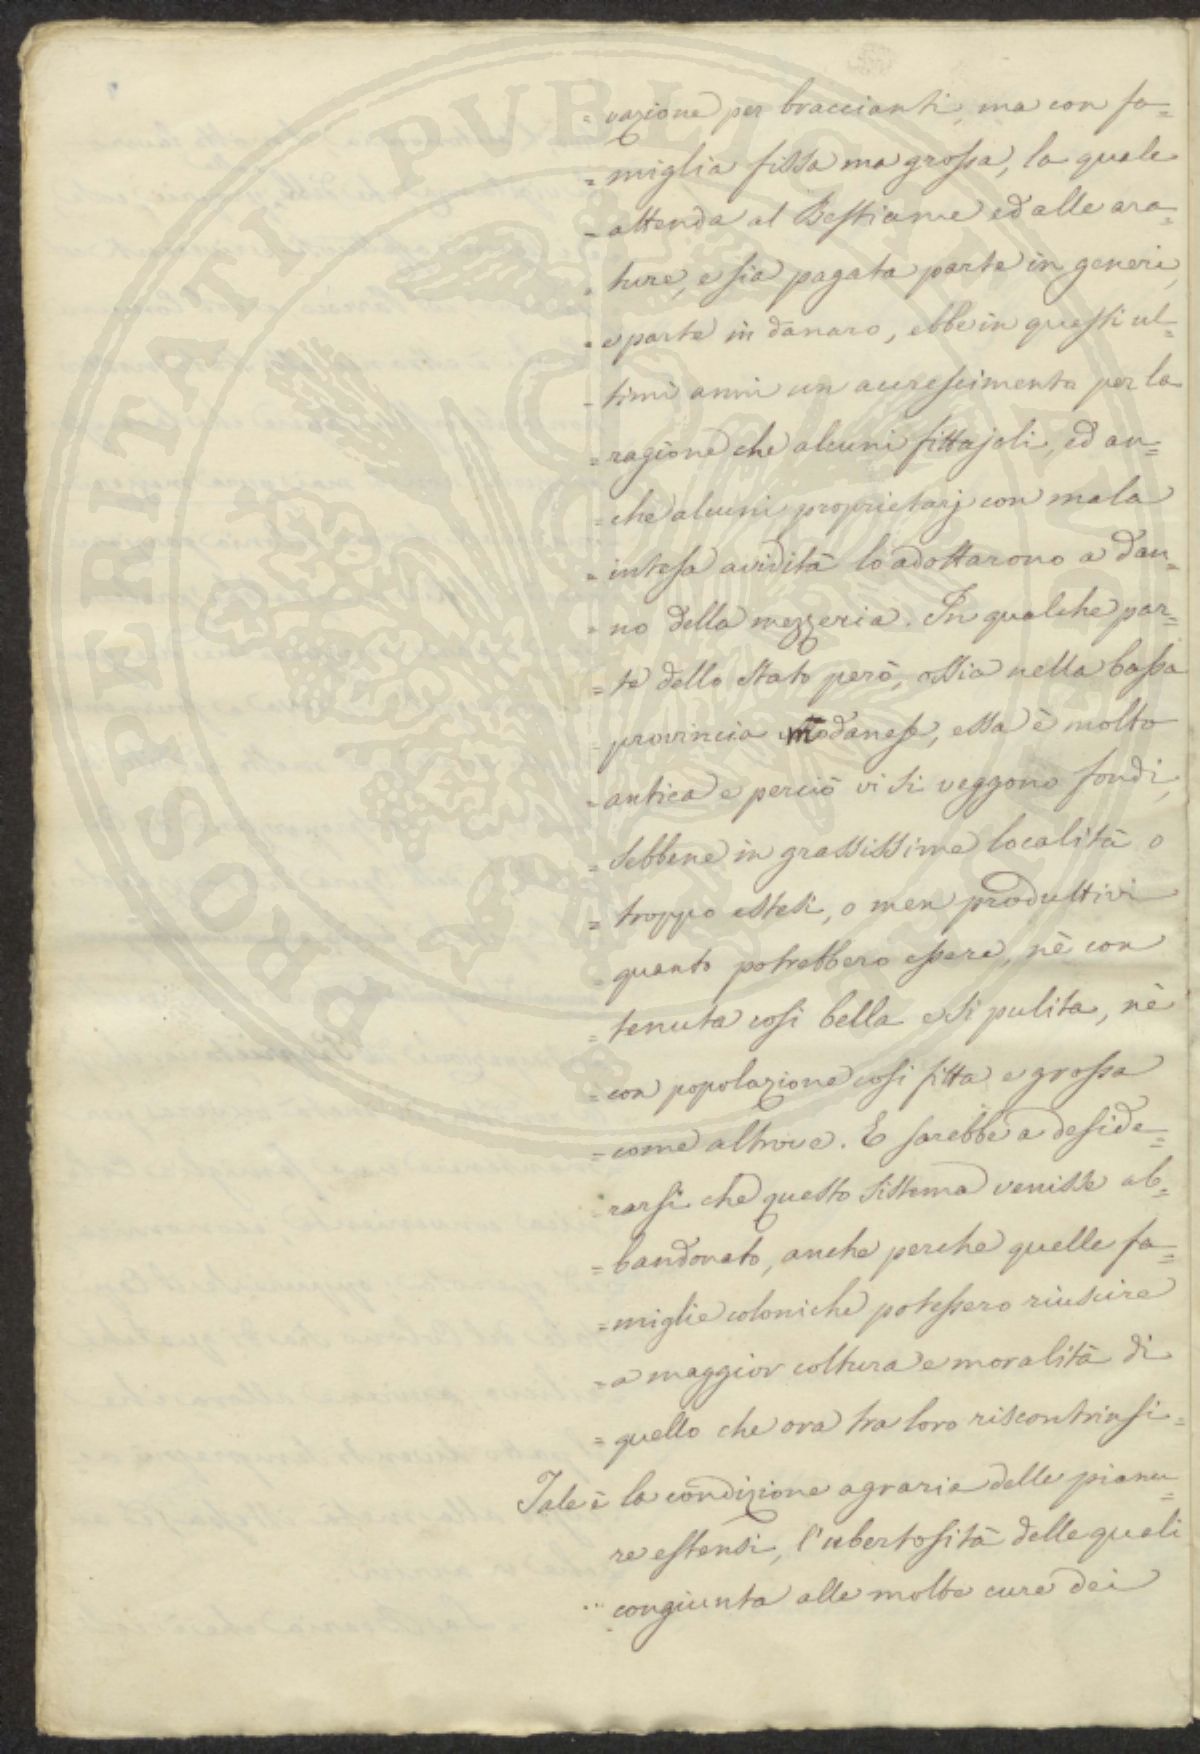 PROSPERITATI PUBLICAE AUGENDAE
= vazione per braccianti, ma con fa=
= miglia fissa ma grossa, la quale
= attenda al Bestiame ed alle ara=
= ture, e sia pagata parte in generi,
= e parte in danaro, ebbe in questi ul=
= timi anni un accrescimento per la
= ragione che alcuni fittajoli, ed an=
= che alcuni proprietarj con mala
= intesa avidità lo adottarono a dan=
= no della mezzeria. In qualche par=
= te dello stato però, ossia nella bassa
= provincia modanese, essa è molto
= antica e perciò vi si veggono fondi,
= sebbene in grassissime località o
= troppo estesi, o men produttivi
= quanto potrebbero essere, nè con
= tenuta così bella e sì pulita, nè
= con popolazione così fitta e grossa
= come altrove. E sarebbe a deside=
= rarsi che questo sistema venisse ab=
= bandonato, anche perche quelle fa=
= miglie coloniche potessero riuscire
= a maggior coltura e moralità di
= quello che ora tra loro riscontrinsi =
Tale è la condizione agraria delle pianu=
re estensi, l'ubertosità delle quali
congiunta alle molte cure dei